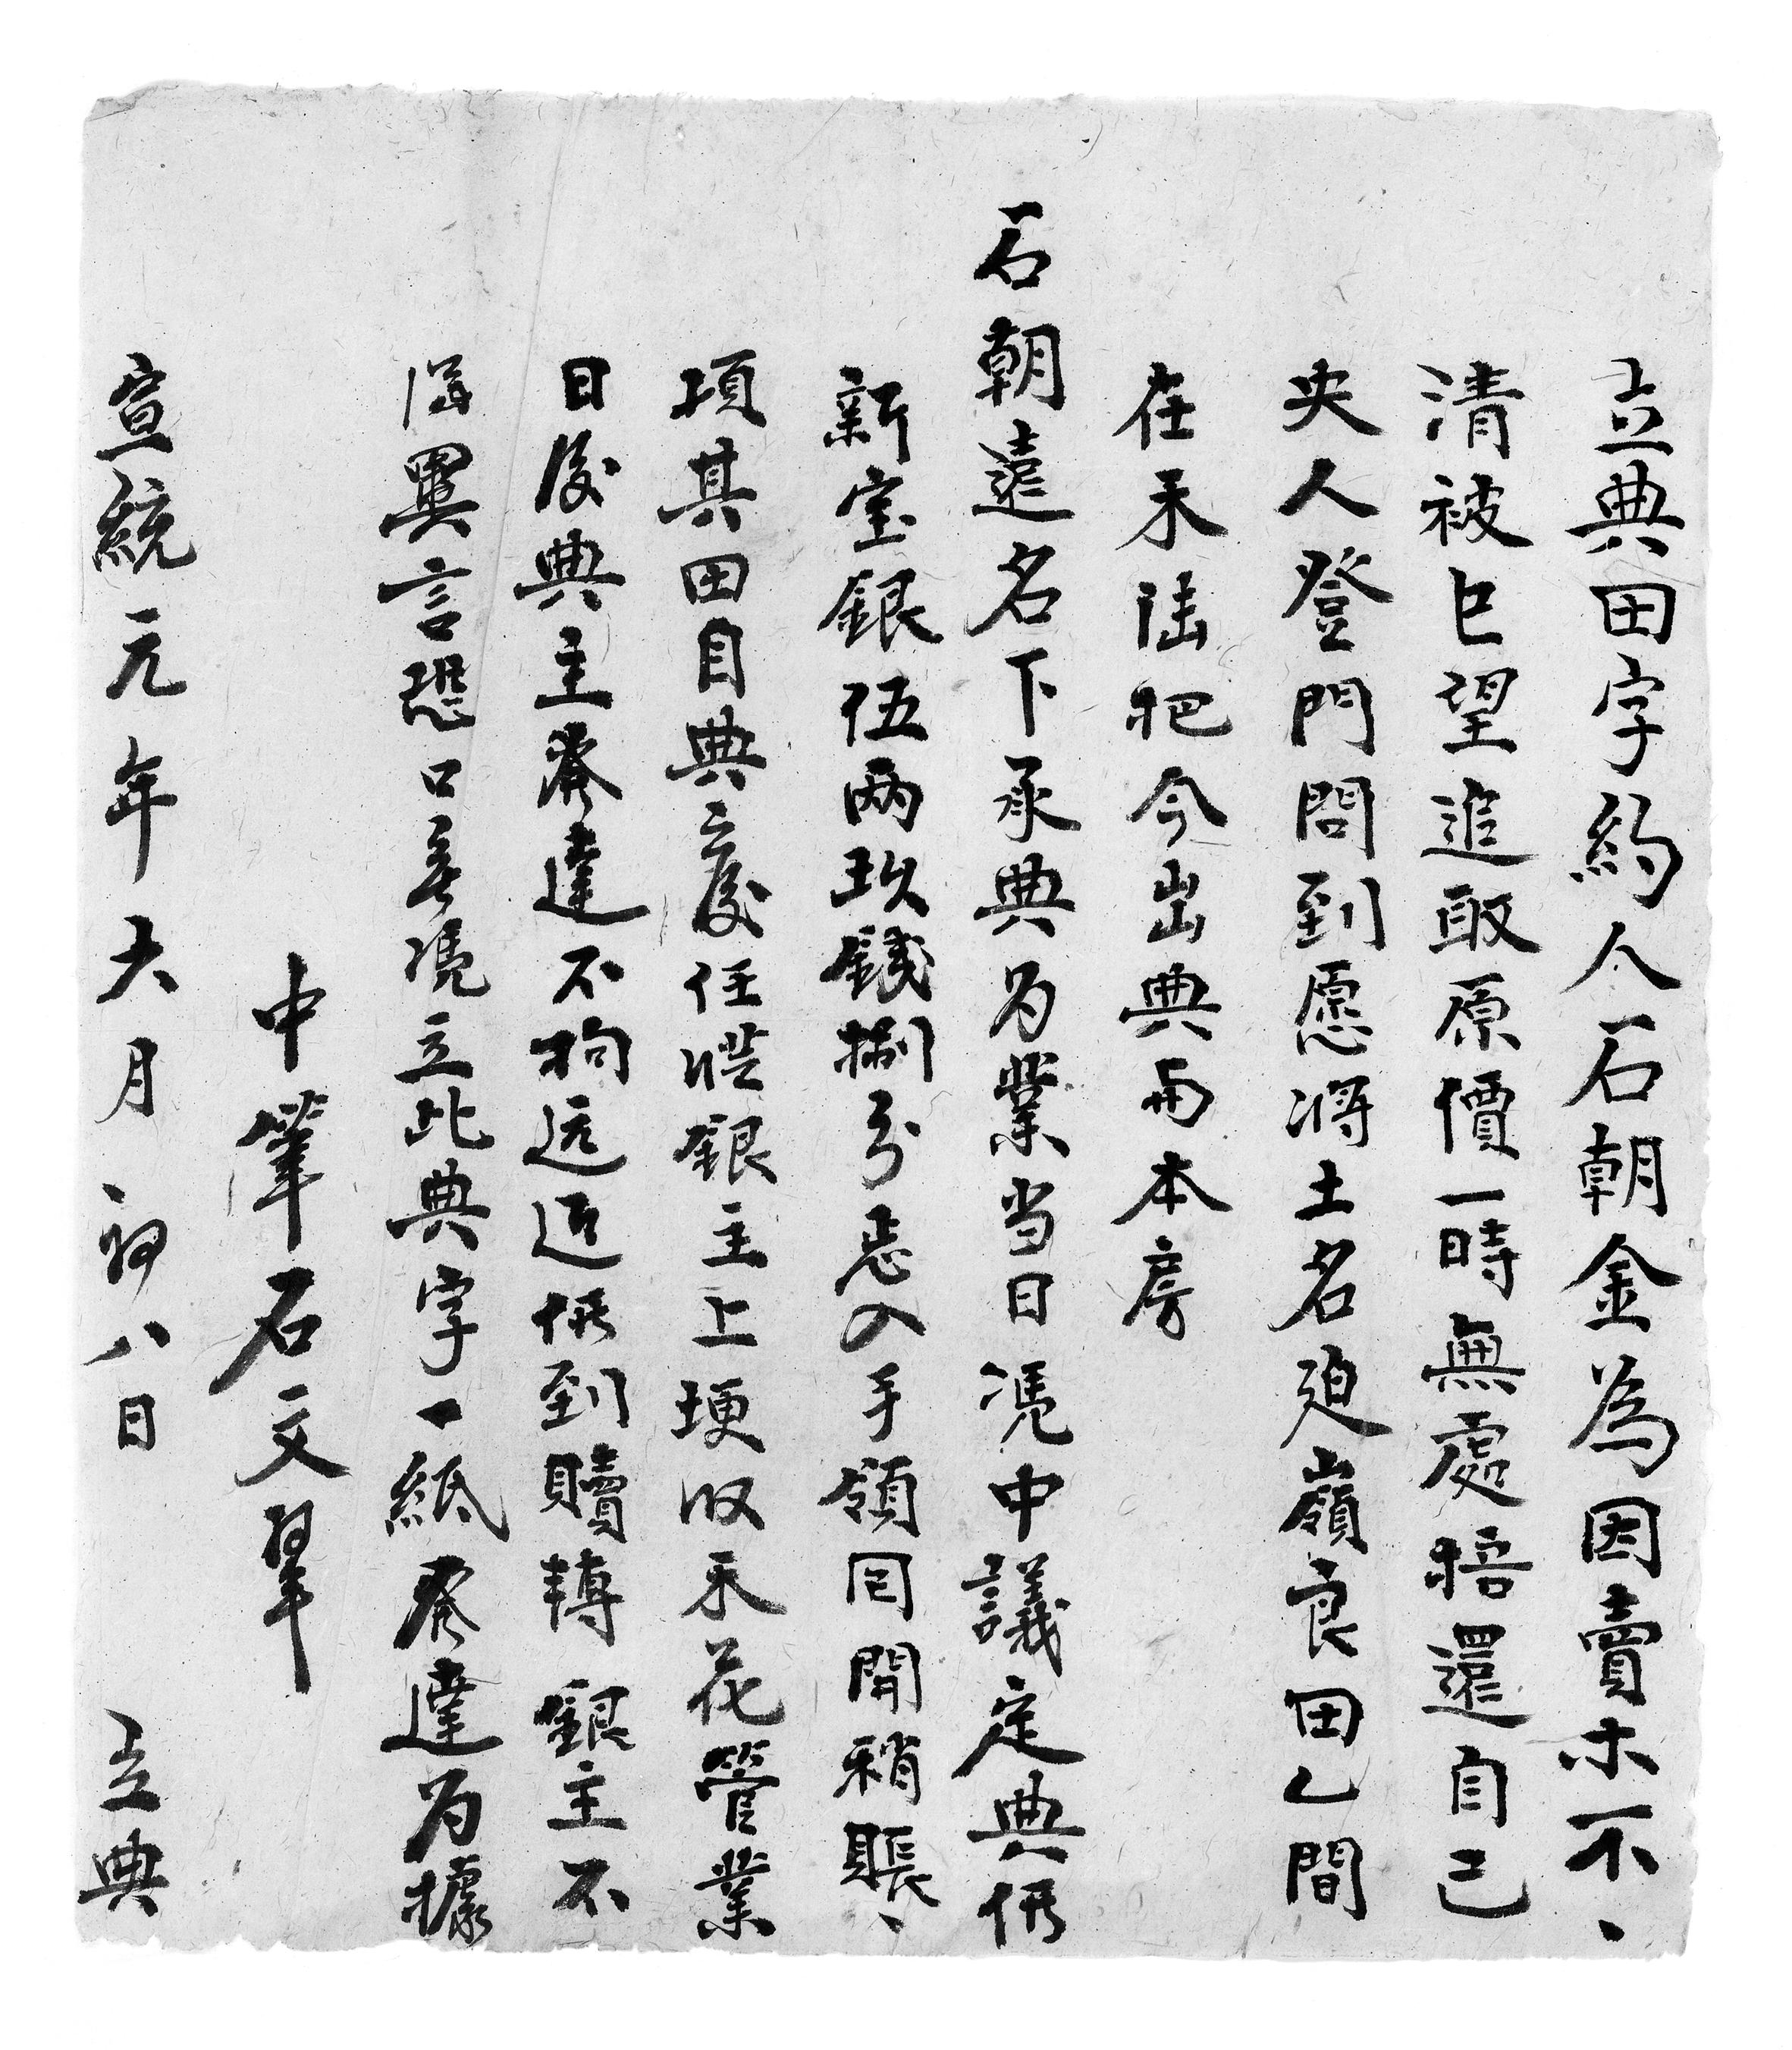 立典田字約人石朝金為因賣木不、
清被乜望追取原價一時無處措還自己
央人登門問到愿將土名廹嶺良田乙間
在禾陆把今出典与本房
石朝遠名下承典为業当日凭中議定典価
新宝銀伍両玖錢捌分忘入手領囘開稍賬、
項其田自典之後任凴銀主上埂收禾花管業
日後典主發達不拘远近価到贖轉銀主不
得異言恐口無凴立此典字一紙發達为據
中筆石文翠
宣統元年六月初八日 立典